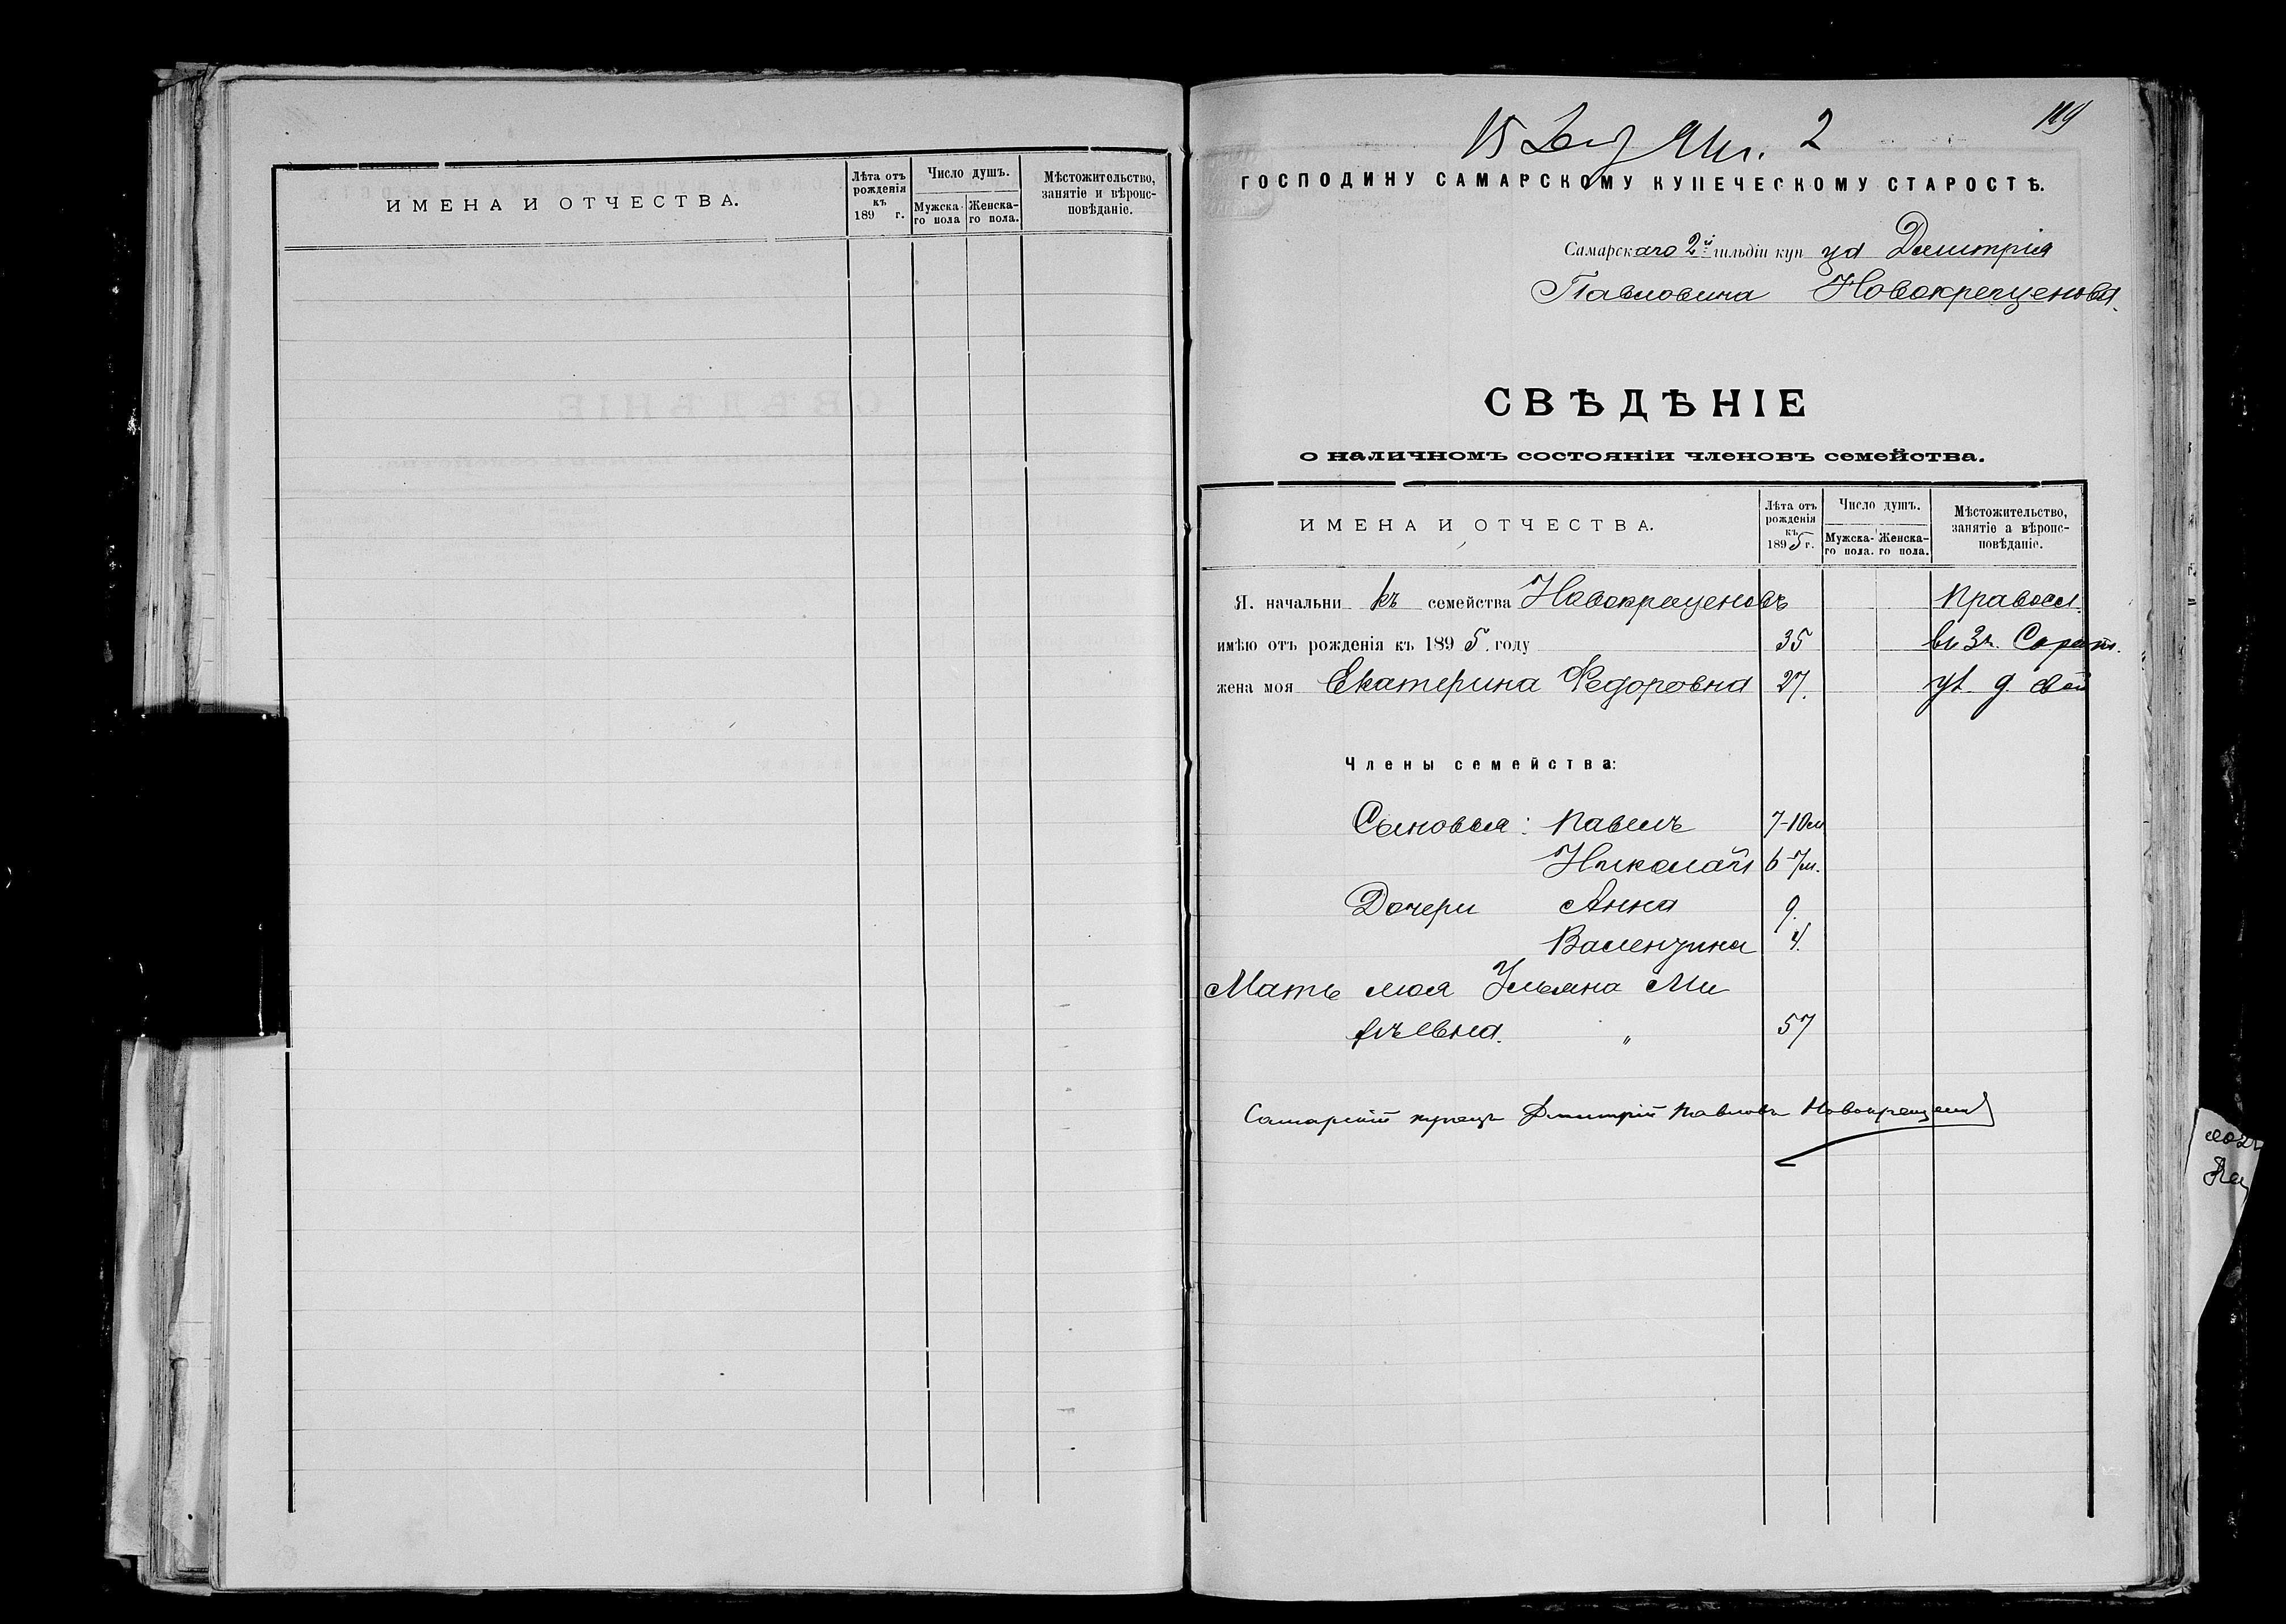 ИМЕНА И ОТЧЕСТВА.
Лѣта отъ рожденія къ 189 г.
Число душъ.
Мужска-го пола
Женска-го пола.
Мѣстожительство, занятіе и вѣроис-повѣданіе.
15
2
119
ГОСПОДИНУ САМАРСКОМУ КУПЕЧЕСКОМУ СТАРОСТѢ.
Самарскаго 2й гильдіи купца Дмитрія
Павловича Новокрещенова.
СВѢДѢНІЕ
о наличномъ состояніи членовъ семейства.
ИМЕНА И ОТЧЕСТВА.
Лѣта отъ рожденія къ 1895 г.
Число душъ.
Мужска-го пола.
Женска-го пола.
Мѣстожительство, занятіе а вѣроис-повѣданіе.
Я. начальникъ семейства Новокрещеновъ Правосл.
имѣю отъ рожденія къ 1895. году 35
жена моя Екатерина Федоровна 27. д. свой
Члены семейства:
Сыновья: Павелъ 7-10м
Николай 6-7м.
Дочери Анна 9.
Валентина 4.
Мать моя Ульяна Ми
евна. " 57
Самарскій купецъ Дмитрій Павловъ Новокрещеновъ